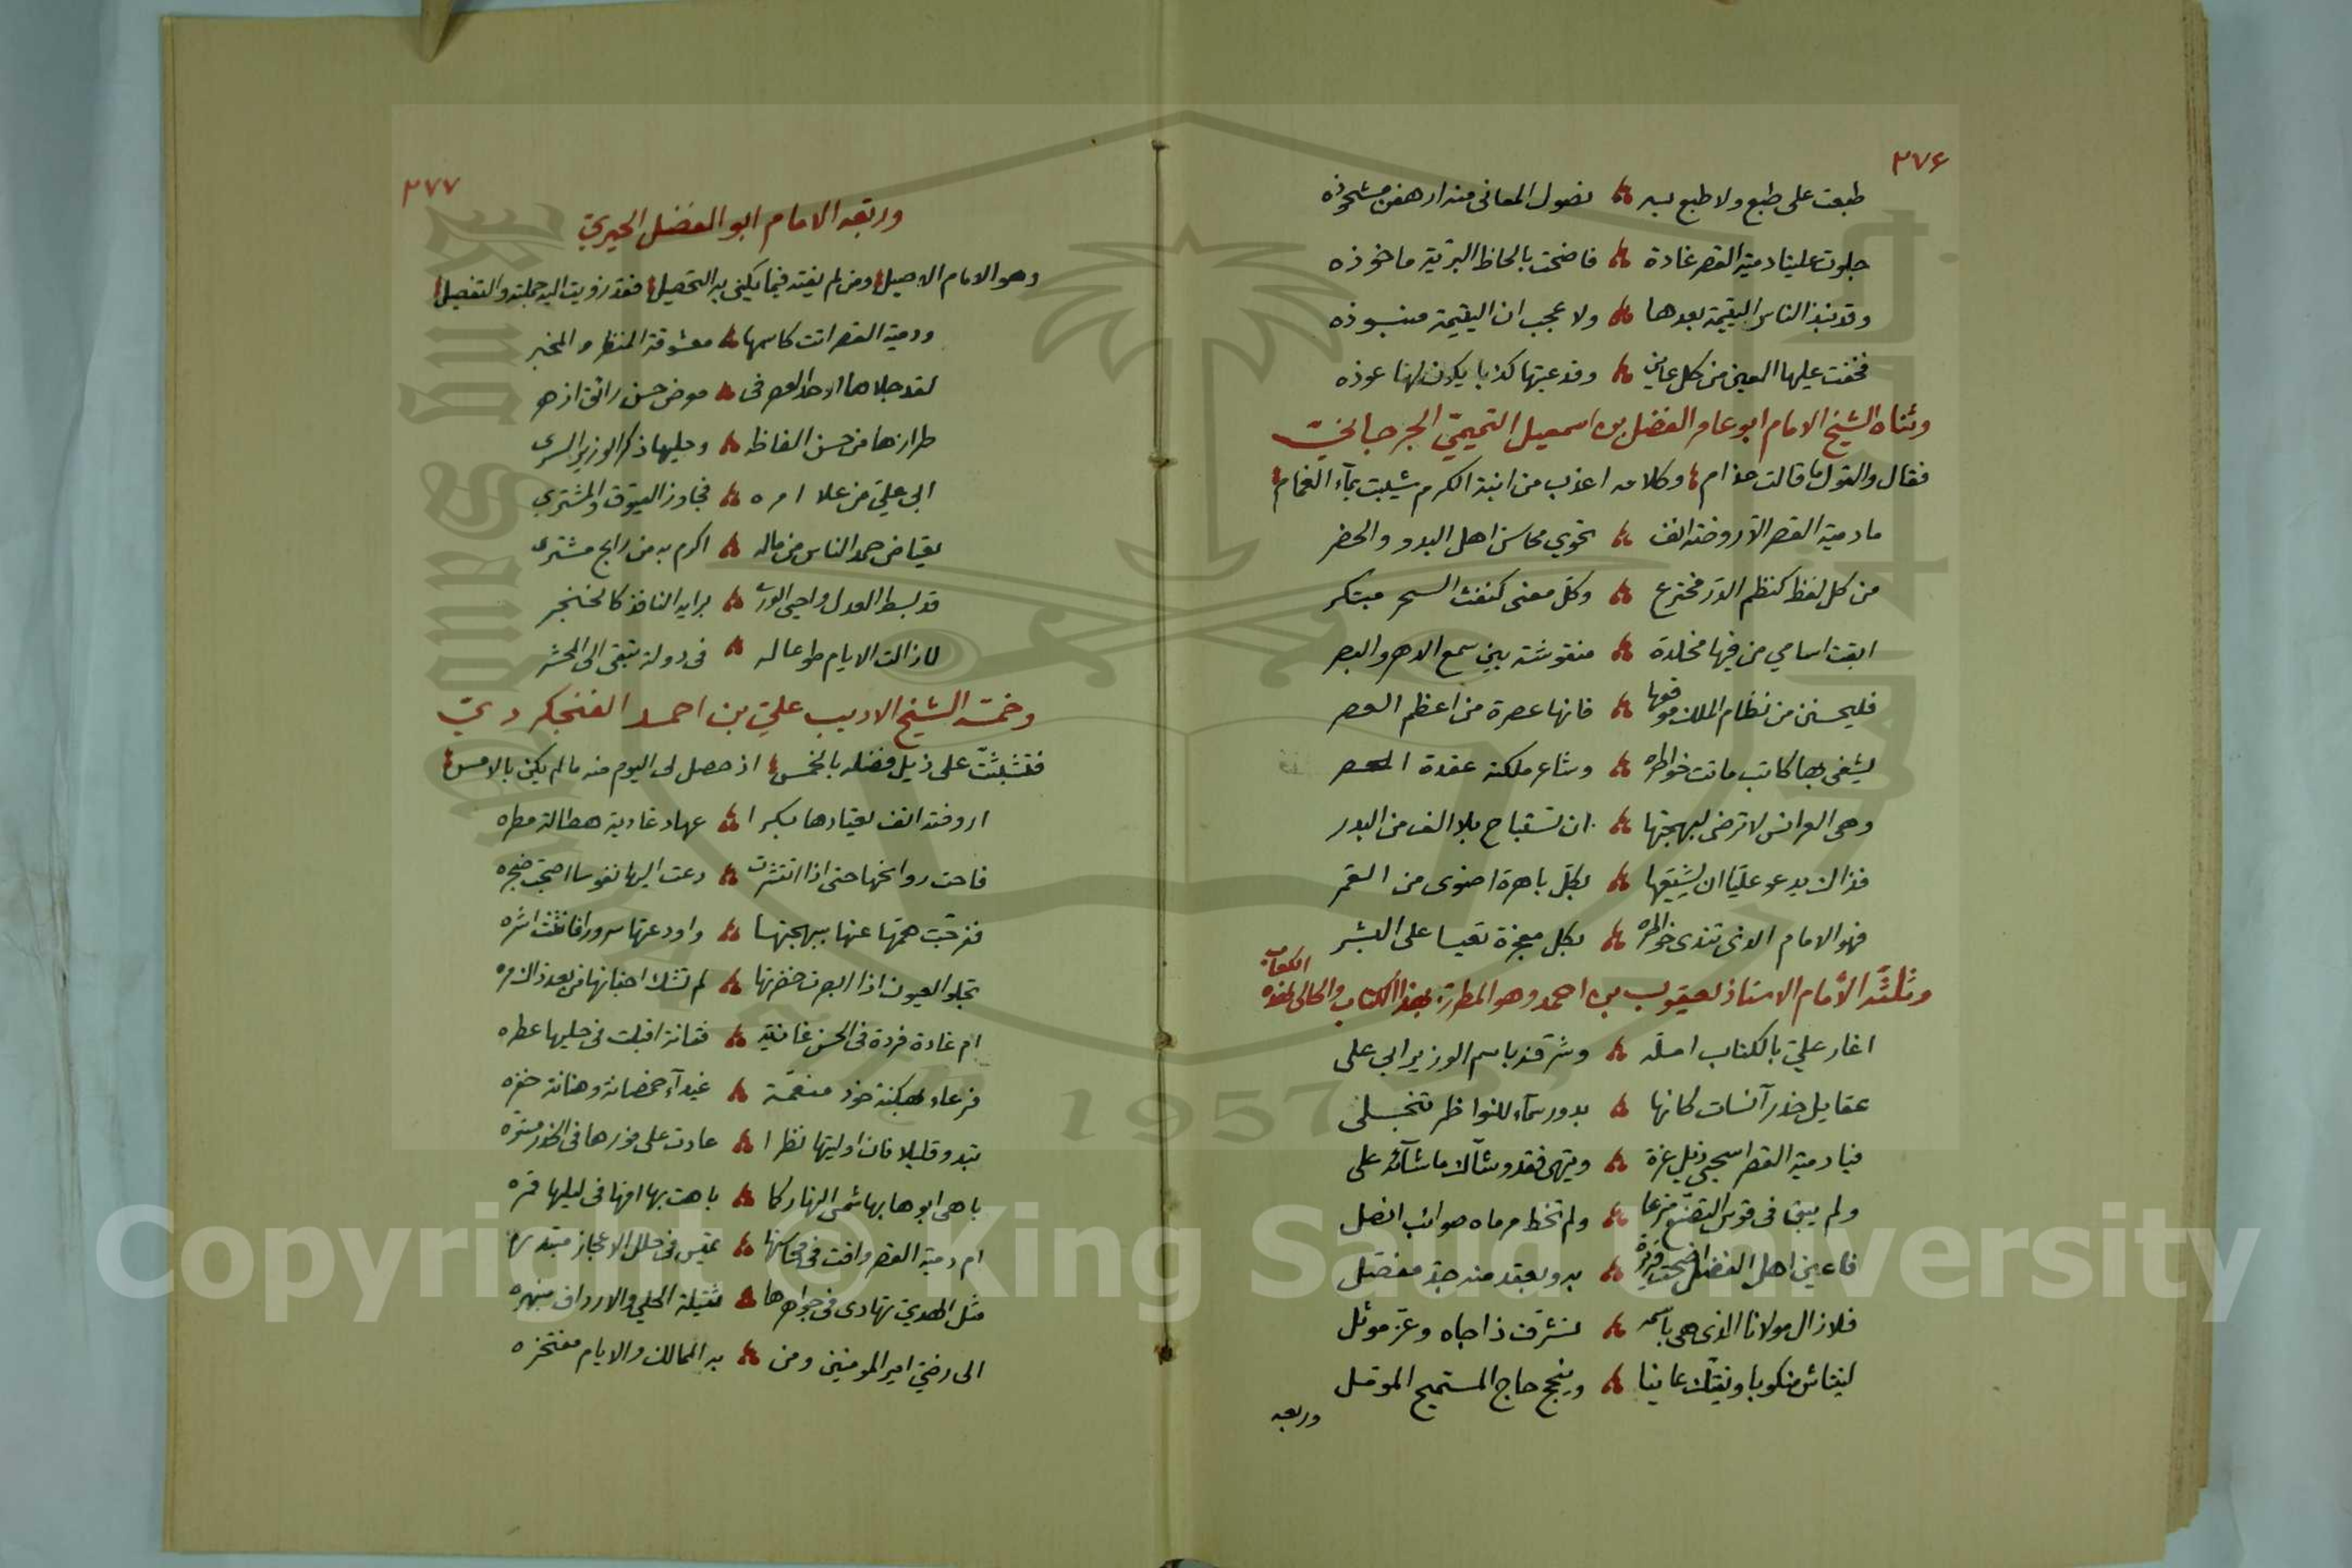 ٢٧٦
طبعت على طبع ولا طبع به نصول المعانى منه ارهفن مشحوذه
جلوت علينا دمية القصر غادة فاضحت بالحاظ البرية ماخوذه
وقد نبذ الناس اليتيمة بعدها ولا عجب ان اليتيمة منبوذه
فخفت عليها العين من كل عاين وقد عبتها كذبا يكون لها عوذه
وثناه الشيخ الامام ابو عامر الفضل بن اسمعيل التميمى الجرجانى
فقال والقول ما قالت حذام وكلامه اعذب من ابنة الكرم شيبت بمآء الغمام
ما دمية القصر الا روضة انف تحوي محاسن اهل البدو والحضر
من كل لفظ كنظم الدر مخترع وكل معنى كنفث السحر مبتكر
ابقت اسامي من فيها مخلدة منقوشة بين سمع الدهر والبصر
فليحسنن من نظام الملك موقعها فانها عصرة من اعظم العصر
يشفى بها كاتب ماتت خواطره وشاعر ملكته عقدة الحصر
وهى العرائس لا ترضى لبهجتها ان تستباح بلا الف من البدر
فذاك يدعو عليا ان يشيعها بكل باهرة اضوى من القمر
فهو الامام الذى تندى خواطره بكل معجزة تعيا على البشر
وثلثه الامام الاستاذ يعقوب بن احمد وهو المطرز بهذا الكتاب والحالى لهذه الكعاب
اغار علي بالكتاب امله وشرفه باسم الوزير ابي على
عقايل خدر آنسات كانها بدور سمآء للنواظر تنجلى
فيا دمية القصر اسحبى ذيل عزة وتيهى فقد وشاك ما شآئد على
ولم يبق فى قوس التصنع منزعا ولم تخط مرماه صوائب انصل
فاعين اهل الفضل اضحت قريرة به وبعقد منه جد مفصل
فلا زال مولانا الذى هى باسمه تشرف ذا جاه وعز موثل
لينتاش منكوبا ويفتك عانيا وينجح حاج المستميح المومل
وربعه
٢٧٧
وربعه الامام ابو الفضل الحيري
وهو الامام الاصيل ومن لم يفته فيما يكنى به التحصيل فقد زويت اليه جملته والتفصيل
ودمية القصر اتت كاسمها معشوقة المنظر والمخبر
لقد جلاها اوحد العصر فى معرض حسن رائق ازهر
طرازها من حسن الفاظه وحليها ذكر الوزير السرى
ابى علي من علا امره فجاوز العيوق والمشترى
يقتاض حمد الناس من ماله اكرم به من رابح مشترى
قد بسط العدل واحيى الورى برايه النافذ كالخنجر
لا زالت الايام طوعا له فى دولة تبقى الى المحشر
وخمسه الشيخ الاديب علي بن احمد الفنجكردي
فتشبثت على ذيل فضله بالخمس اذ حصل لى اليوم منه ما لم يكن بالامس
اروضة انف يعتادها بكرا عهاد غادية هطالة مطره
فاحت روائحها حتى اذا انتشرت دعت اليها نفوسا اصبحت ضجره
ففرحت همها عنها ببهجتها واودعتها سرورا فانثنت اشره
تجلو العيون اذا ابصرت خضرتها لم تشك اجفانها من بعد ذاك مره
ام غادة فردة فى الحسن غانية فتانة اقبلت فى حليها عطره
فرعاء بهكنة خود منعمة غيدآء خمصانة وهنانة خفره
تبدو قليلا فان اوليتها نظرا عادت على فورها فى الخدر مستتره
باهى ابوها بها شمس النهار كما باهت بها امها فى ليلها قمره
ام دمية القصر وافت فى محاسنها تميس فى حلل الاعجاز
مثل الهدي تهادى فى جواهرها ثقيلة الحلي والارداف منبهره
الى رضي امير المومنين ومن به الممالك والايام مفتخره
Copyright © King Saud University
1957